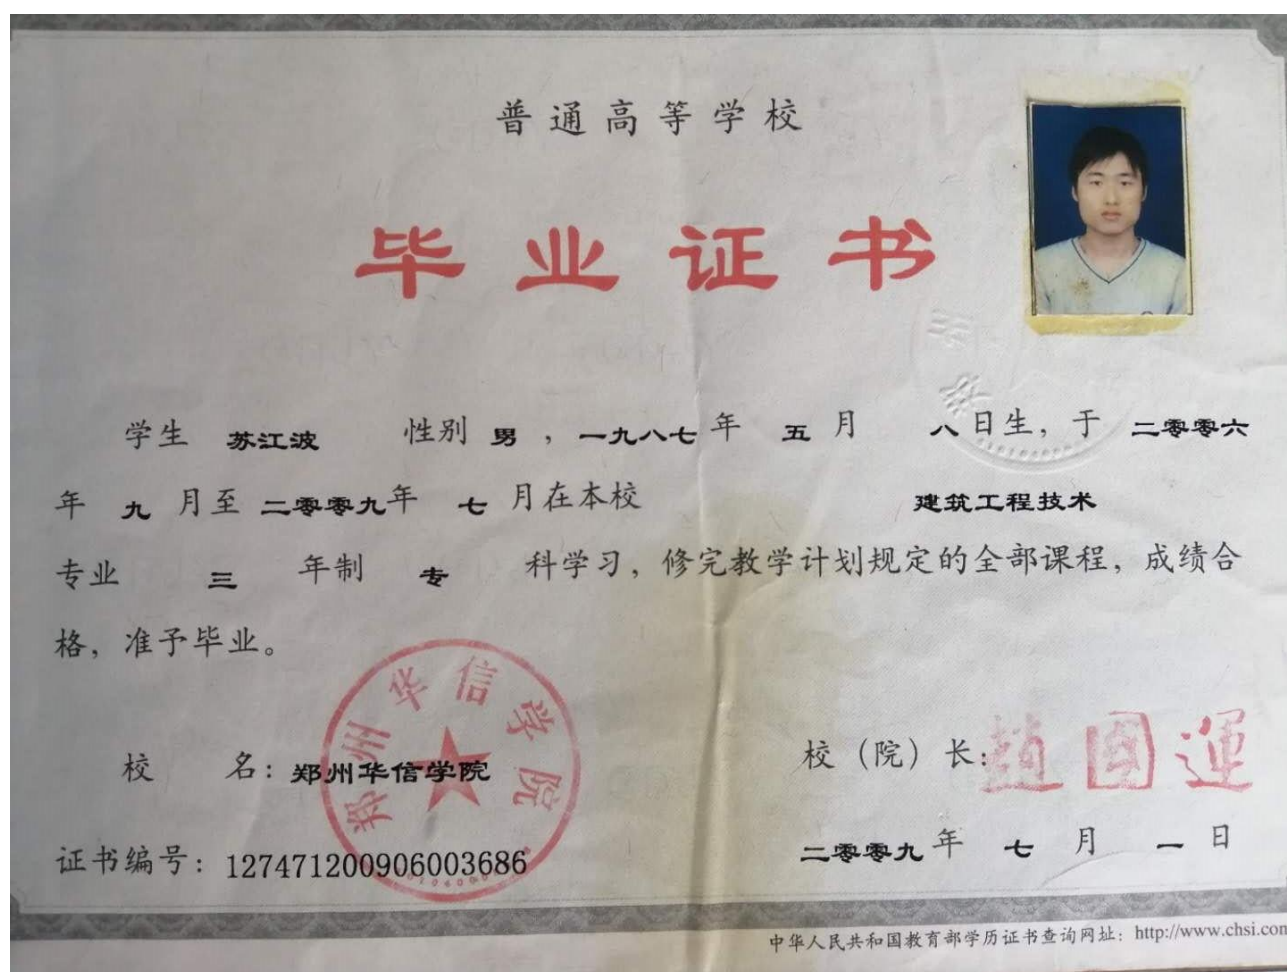 普通高等学校
毕业证书
学生 苏江波 性别 男，一九八七年 五月 八日生，于 二零零六
年 九 月至 二零零九年 七 月在本校 建筑工程技术
专业 三 年制 专 科学习，修完教学计划规定的全部课程，成绩合
格，准予毕业。
郑州华信学院
校 名：郑州华信学院
校（院）长：趙國運
证书编号：127471200906003686
二零零九年 七 月 一 日
中华人民共和国教育部学历证书查询网址：http://www.chsi.com